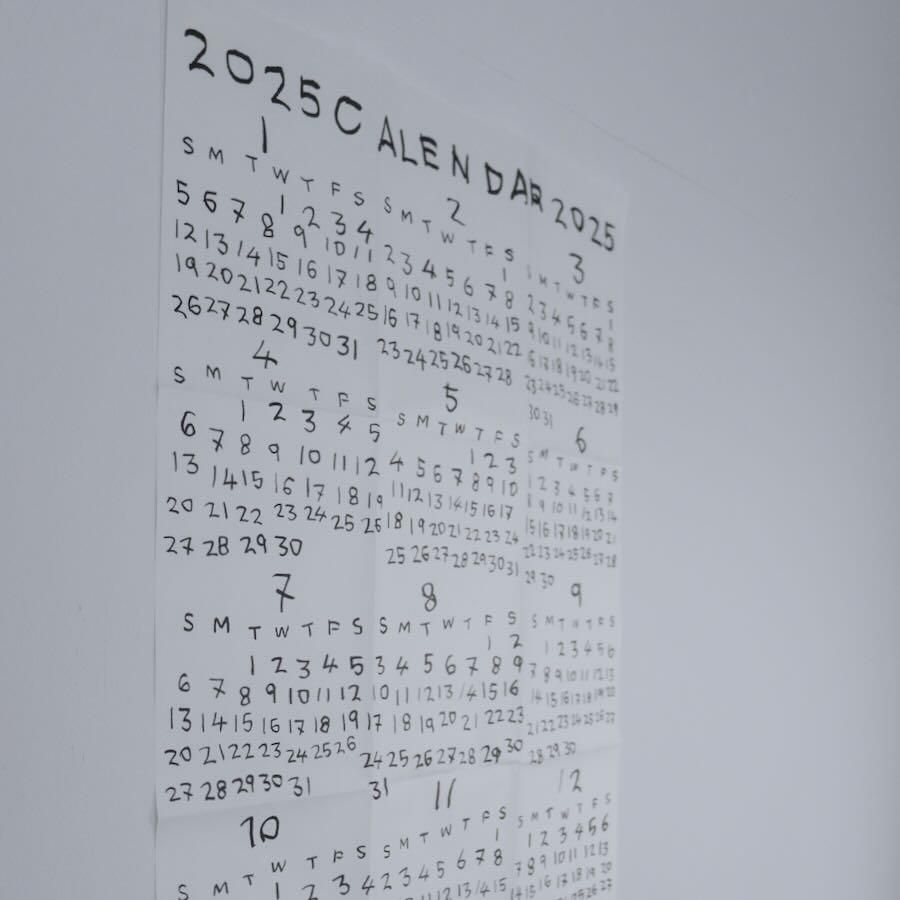 2025 CALENDAR 2025
1
S M T W T F S
1 2 3 4
5 6 7 8 9 10 11
12 13 14 15 16 17 18
19 20 21 22 23 24 25
26 27 28 29 30 31
2
S M T W T F S
1
2 3 4 5 6 7 8
9 10 11 12 13 14 15
16 17 18 19 20 21 22
23 24 25 26 27 28
3
M T W T F S
1
2 3 4 5 6 7 8
9 10 11 12 13 14 15
6 17 18 19 20 21 22
23 24 25 26 27 28 29
30 31
4
S M T W T F S
1 2 3 4 5
6 7 8 9 10 11 12
13 14 15 16 17 18 19
20 21 22 23 24 25 26
27 28 29 30
5
S M T W T F S
1 2 3
4 5 6 7 8 9 10
11 12 13 14 15 16 17
18 19 20 21 22 23 24
25 26 27 28 29 30 31
6
S M T W T F S
1 2 3 4 5 6 7
8 9 10 11 12 13 14
15 16 17 18 19 20 21
22 23 24 25 26 27 28
29 30
7
S M T W T F S
1 2 3 4 5
6 7 8 9 10 11 12
13 14 15 16 17 18 19
20 21 22 23 24 25 26
27 28 29 30 31
8
S M T W T F S
1 2
3 4 5 6 7 8 9
10 11 12 13 14 15 16
17 18 19 20 21 22 23
24 25 26 27 28 29 30
31
9
S M T W T F S
1 2 3 4 5 6
7 8 9 10 11 12 13
14 15 16 17 18 19 20
21 22 23 24 25 26 27
28 29 30
10
S M T W T F S
1 2 3 4
11
S M T W T F S
1
2 3 4 5 6 7 8
11 12 13 14 15
12
S M T W T F S
1 2 3 4 5 6
7 8 9 10 11 12 13
14 15 16 17 18 19 20
25 26 27